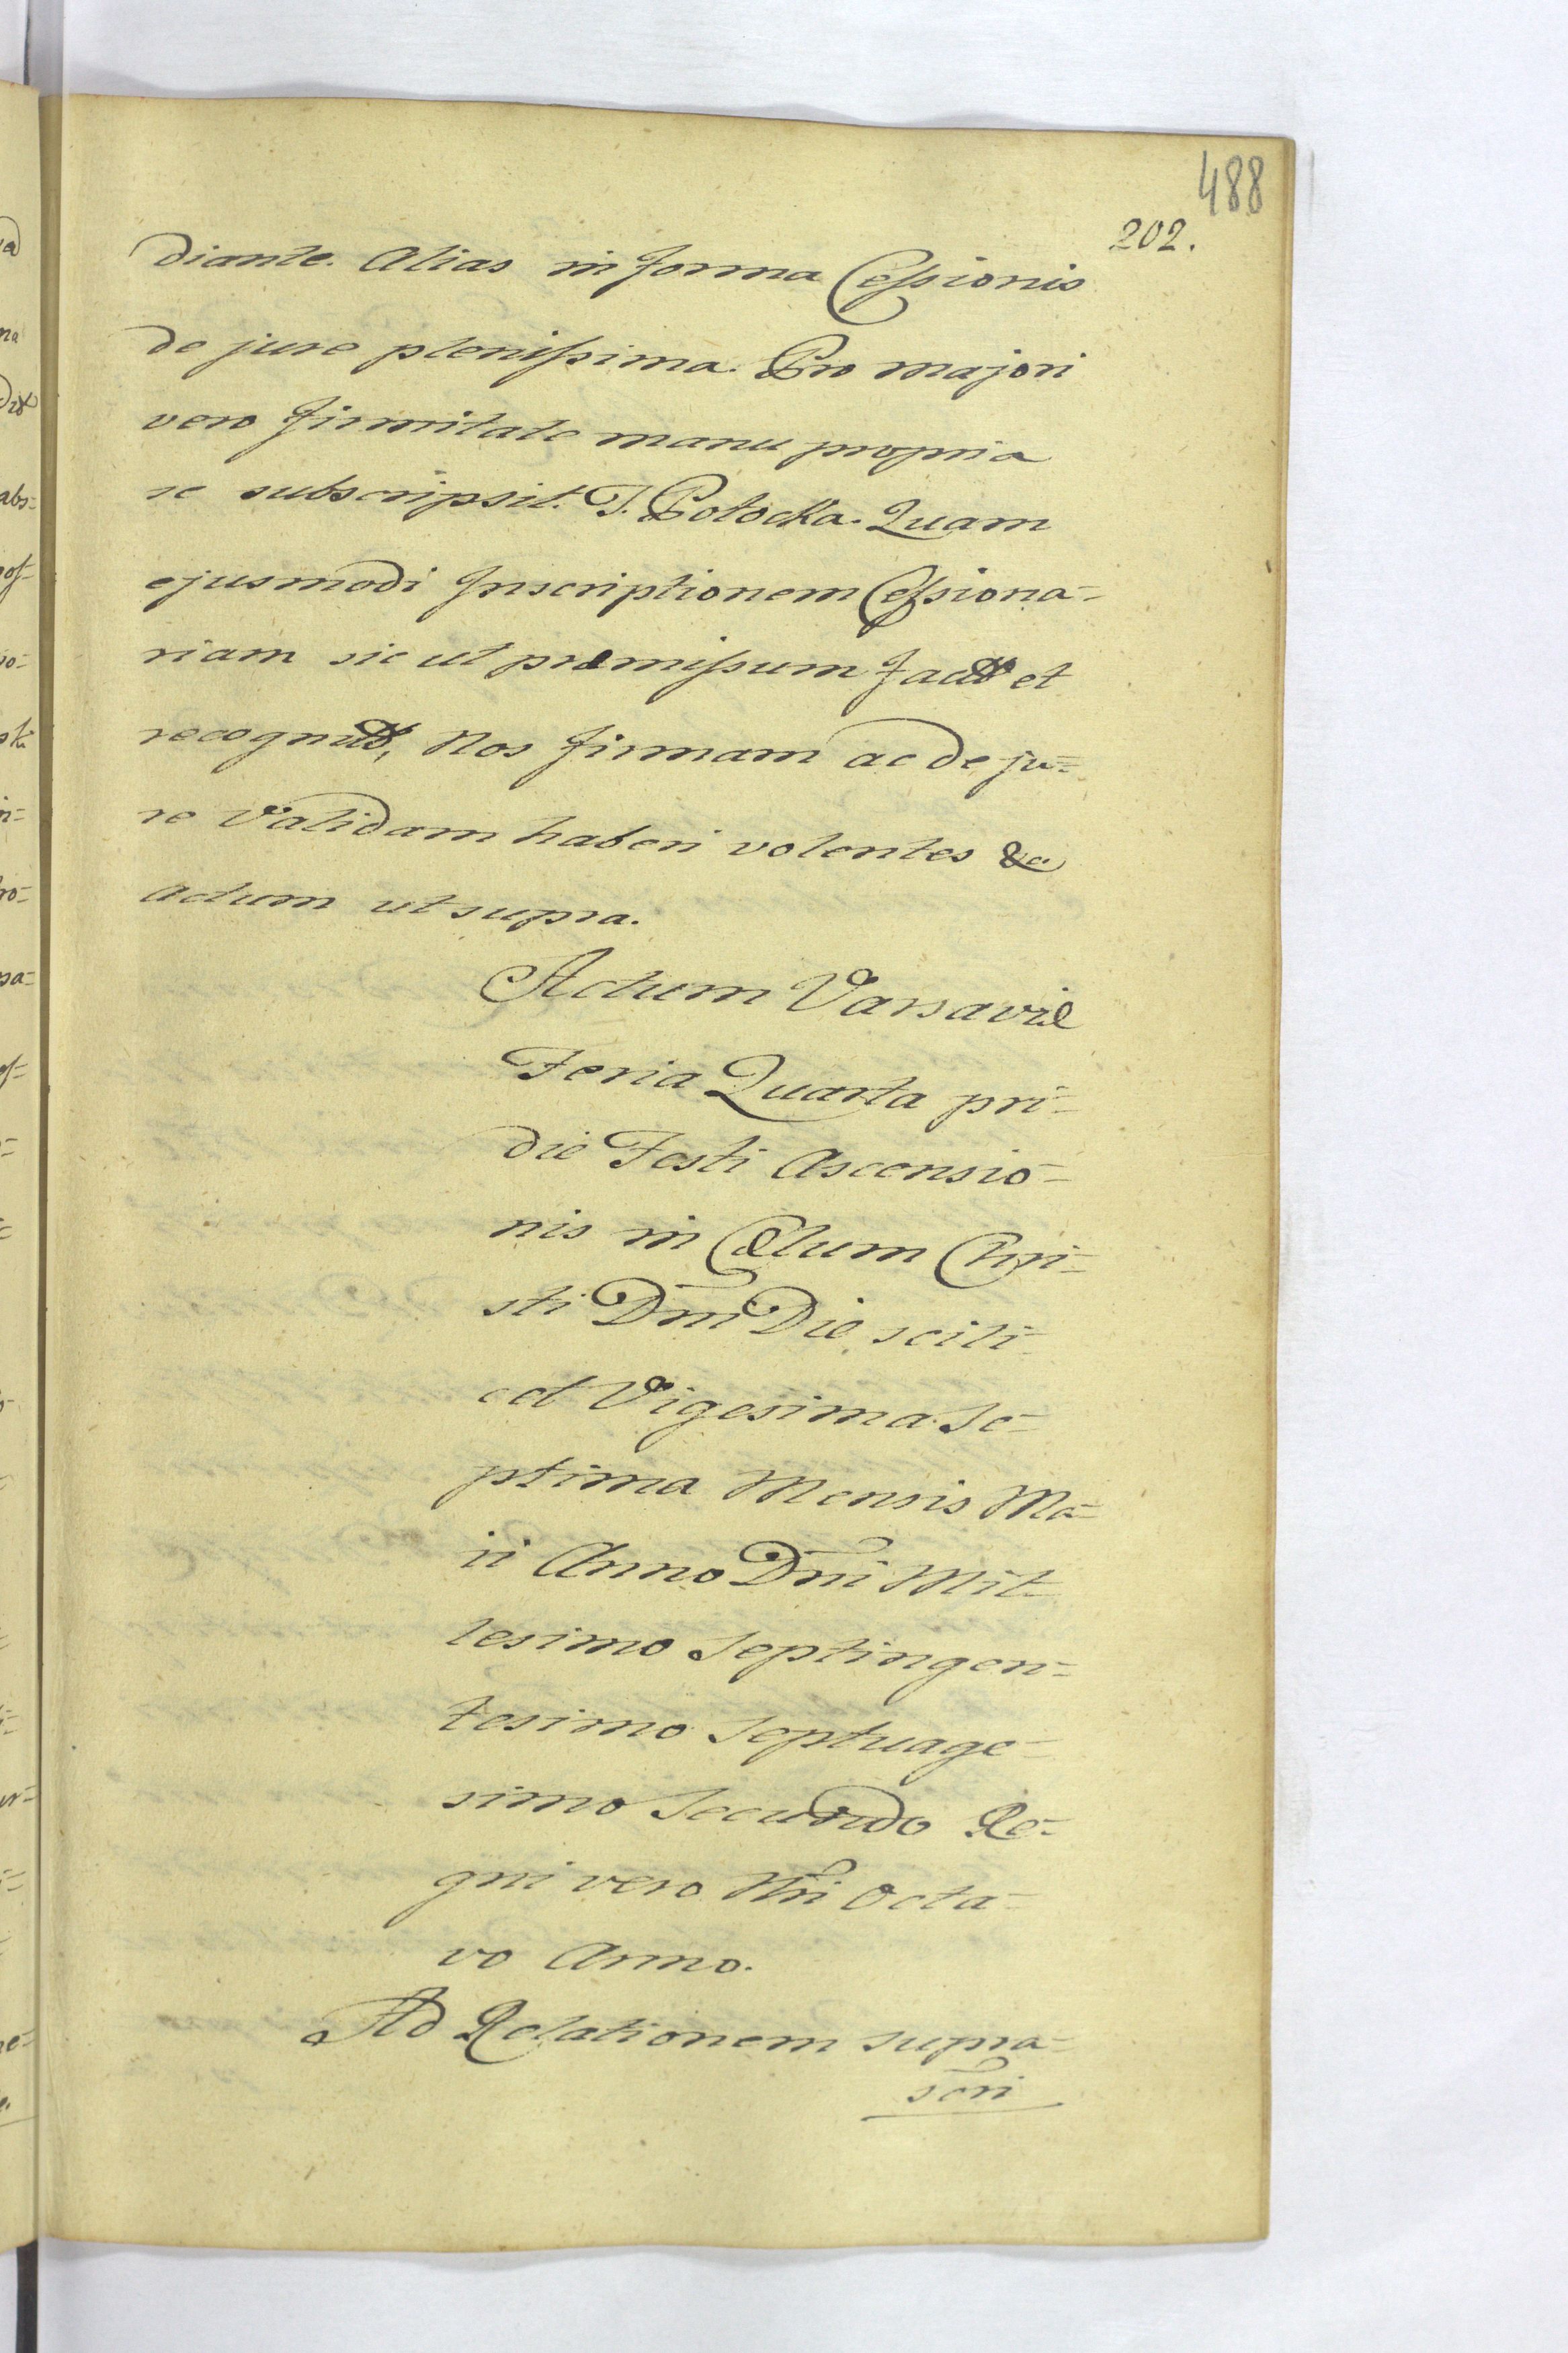 488
202.
diante. Alias in forma Cessionis
de jure plenissima. Pro majori
vero firmitate manu propria
se subscripsit. T. Potocka. Quam
ejusmodi Inscriptionem Cessiona=
riam sic ut præmissum et
Nos firmam ac de ju=
re Validam haberi volentes &c
Actum ut supra.
Actum Varsaviæ
Feria Quarta pri=
die Festi Ascensio=
nis in Cælum Chri=
sti Dni Die scili=
cet Vigesima Se=
ptima Mensis Ma=
ii Anno Dni Mil=
lesimo Septingen=
tesimo Septuage=
simo Secundo Re=
gni vero Nri Octa=
vo Anno.
Ad Relationem supra=
scri